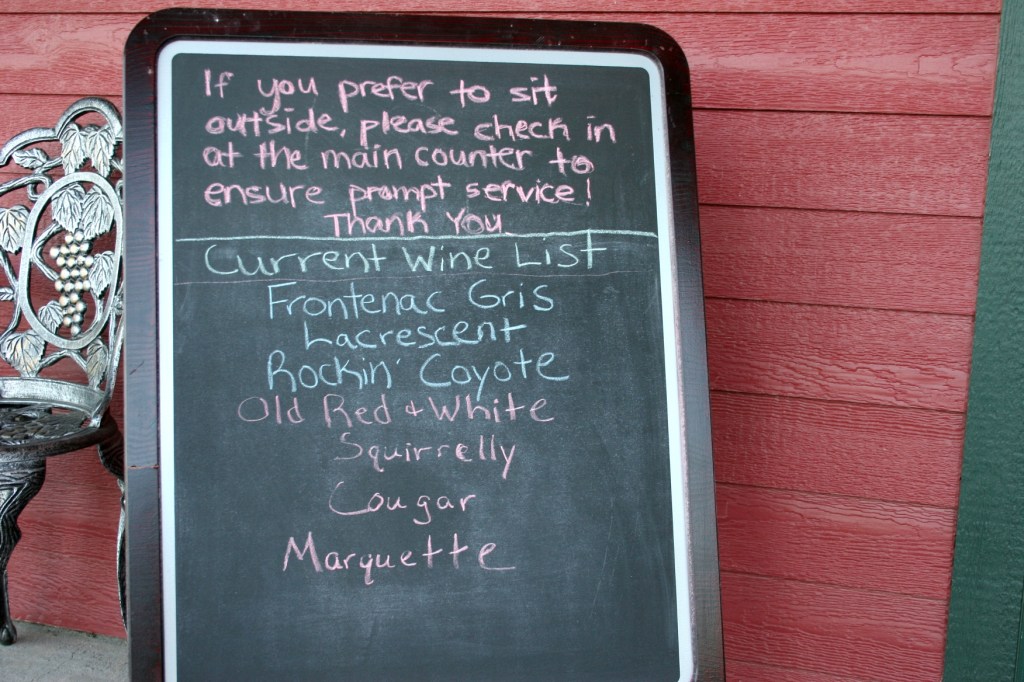 If you prefer to sit
outside, please check in
at the main counter to
ensure prompt service!
Thank You
Current Wine List
Frontenac Gris
Lacrescent
Rockin' Coyote
Old Red & White
Squirrelly
Cougar
Marquette